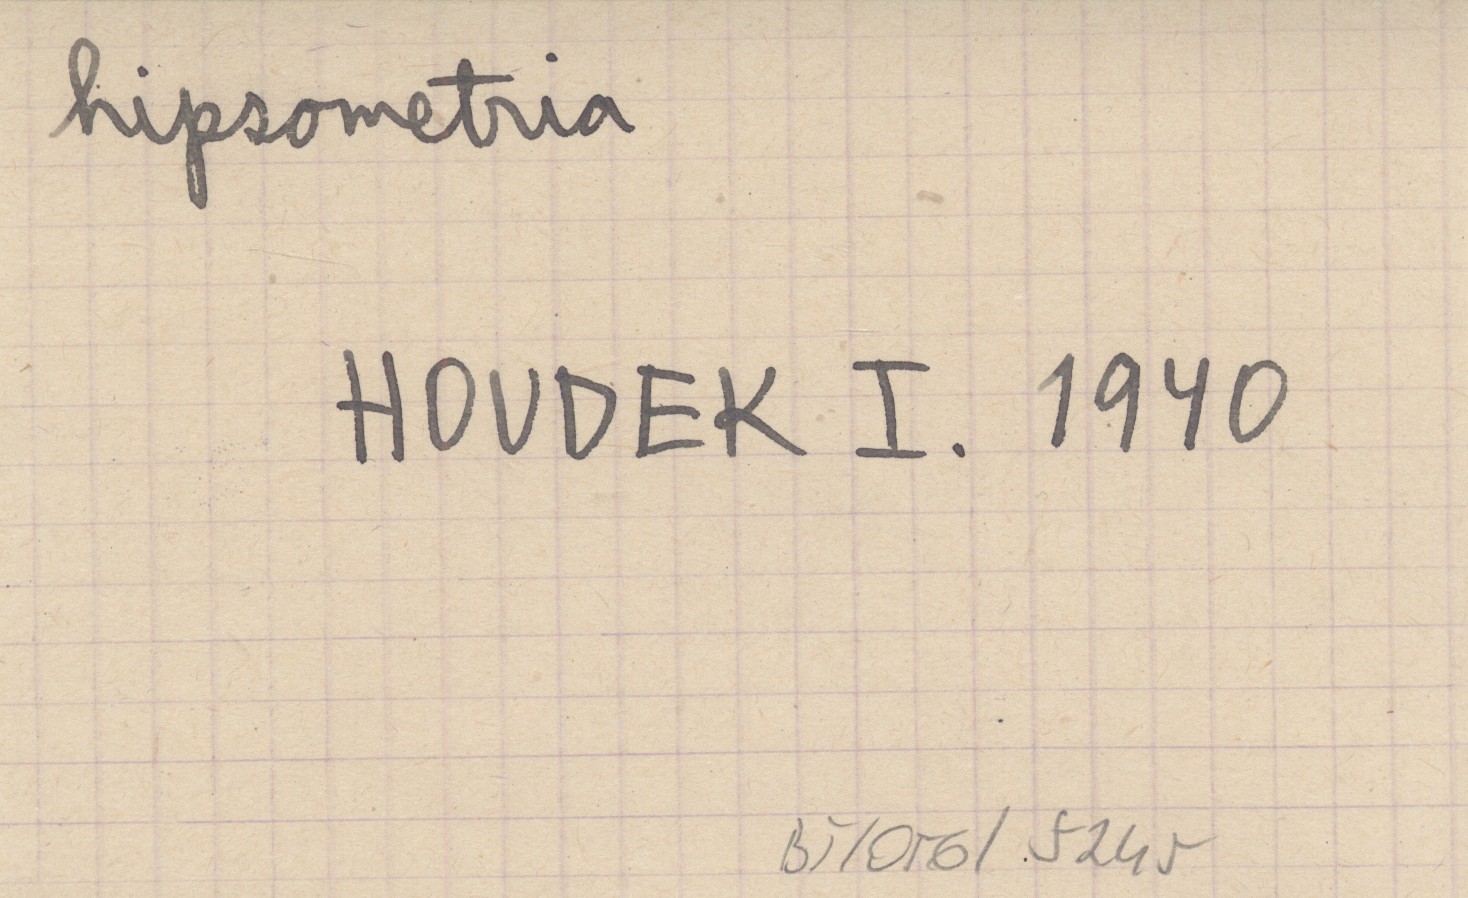 hipsometria
HOUDEK I. 1940
5245